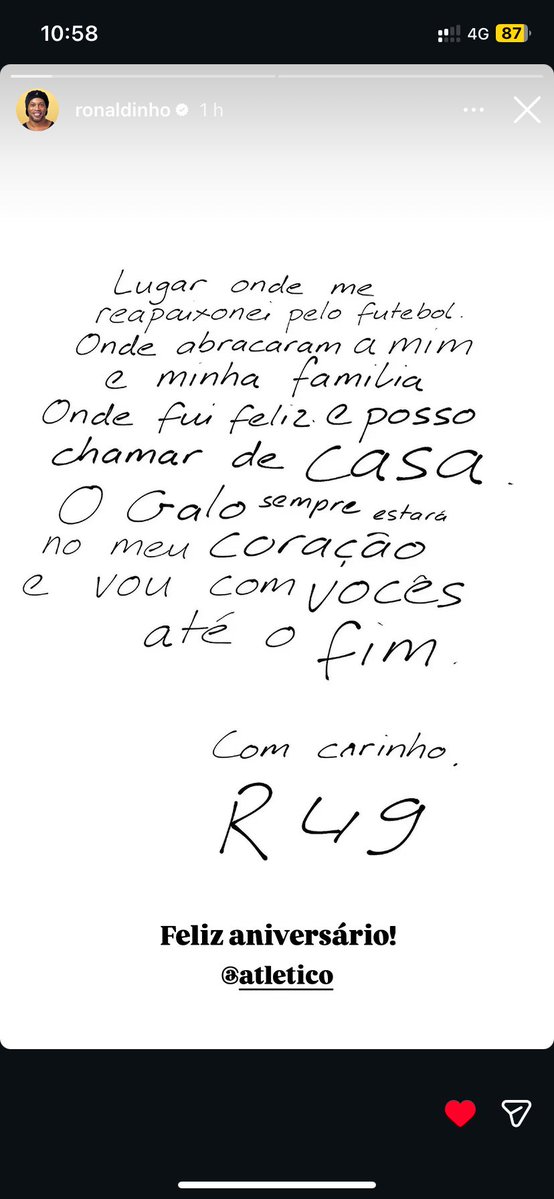 10:58
4G 87
ronaldinho 1 h
Lugar onde me
reapaixonei pelo futebol.
Onde abracaram a mim
e minha familia
Onde fui feliz. e posso
chamar de casa.
O Galo sempre estará
no meu coração
e vou com vocês
até o fim.
Com carinho.
R49
Feliz aniversário!
@atletico